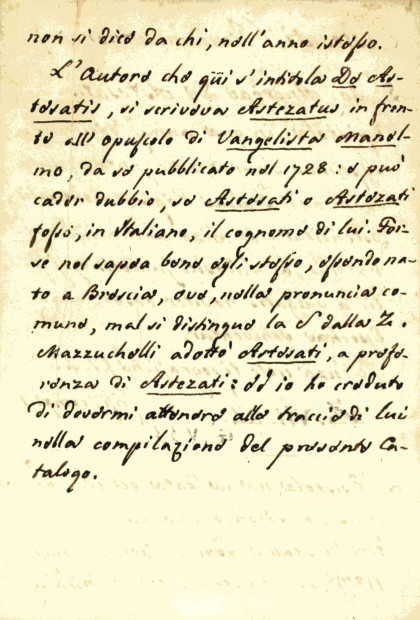 non si dice da chi, nell'anno istesso.
L'Autore che quì s'intitola De As-
tesatis, si scriveva Astezatus in fron-
te all'opuscolo di Vangelista Manel-
mo, da se pubblicato nel 1728: e può
cader dubbio, se Astesati o Astezati
fosse, in Italiano, il cognome di lui. For-
se nel sapea bene egli stesso, essendo na-
to a Brescia, ove, nella pronuncia co-
mune, mal si distingue la S dalla Z.
Mazzuchelli adottò Astesati, a prefe-
renza di Astezati: ed io ho creduto
di dovermi attenere alle traccie di lui
nella compilazione del presente Ca-
talogo.